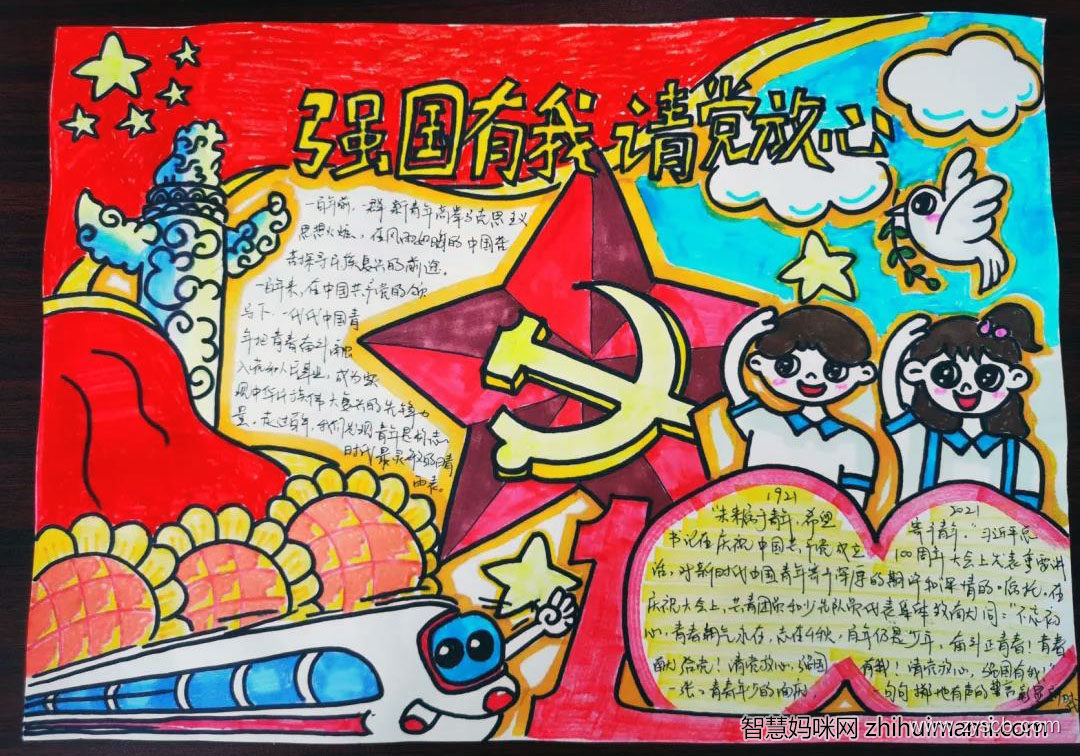 强国有我 请党放心
一百年前，一群新青年高举马克思主义
思想火炬，在风雨如晦的中国苦
苦探寻民族复兴的前途。
一百年来，在中国共产党的领
导下，一代代中国青
年把青春奋斗融
入党和人民事业，成为实
现中华民族伟大复兴的先锋力
量。
时代最灵敏的晴
雨表。
1921
2021
"未来属于青年，希望
寄予青年。"习近平总
书记在庆祝中国共产党成立
100周年大会上发表重要讲
话，对新时代中国青年寄予深厚的期许和深情的信托。在
庆祝大会上，共青团员和少先队员代表集体致献词："不忘初
心，青春朝气永在，志在千秋，百年仍是少年，奋斗正青春！青春
献给党！请党放心，强国
有我！请党放心，强国有我！"
一张张青春年少的面府，
一句句掷地有声的誓言
智慧妈咪网 zhihuimami.com